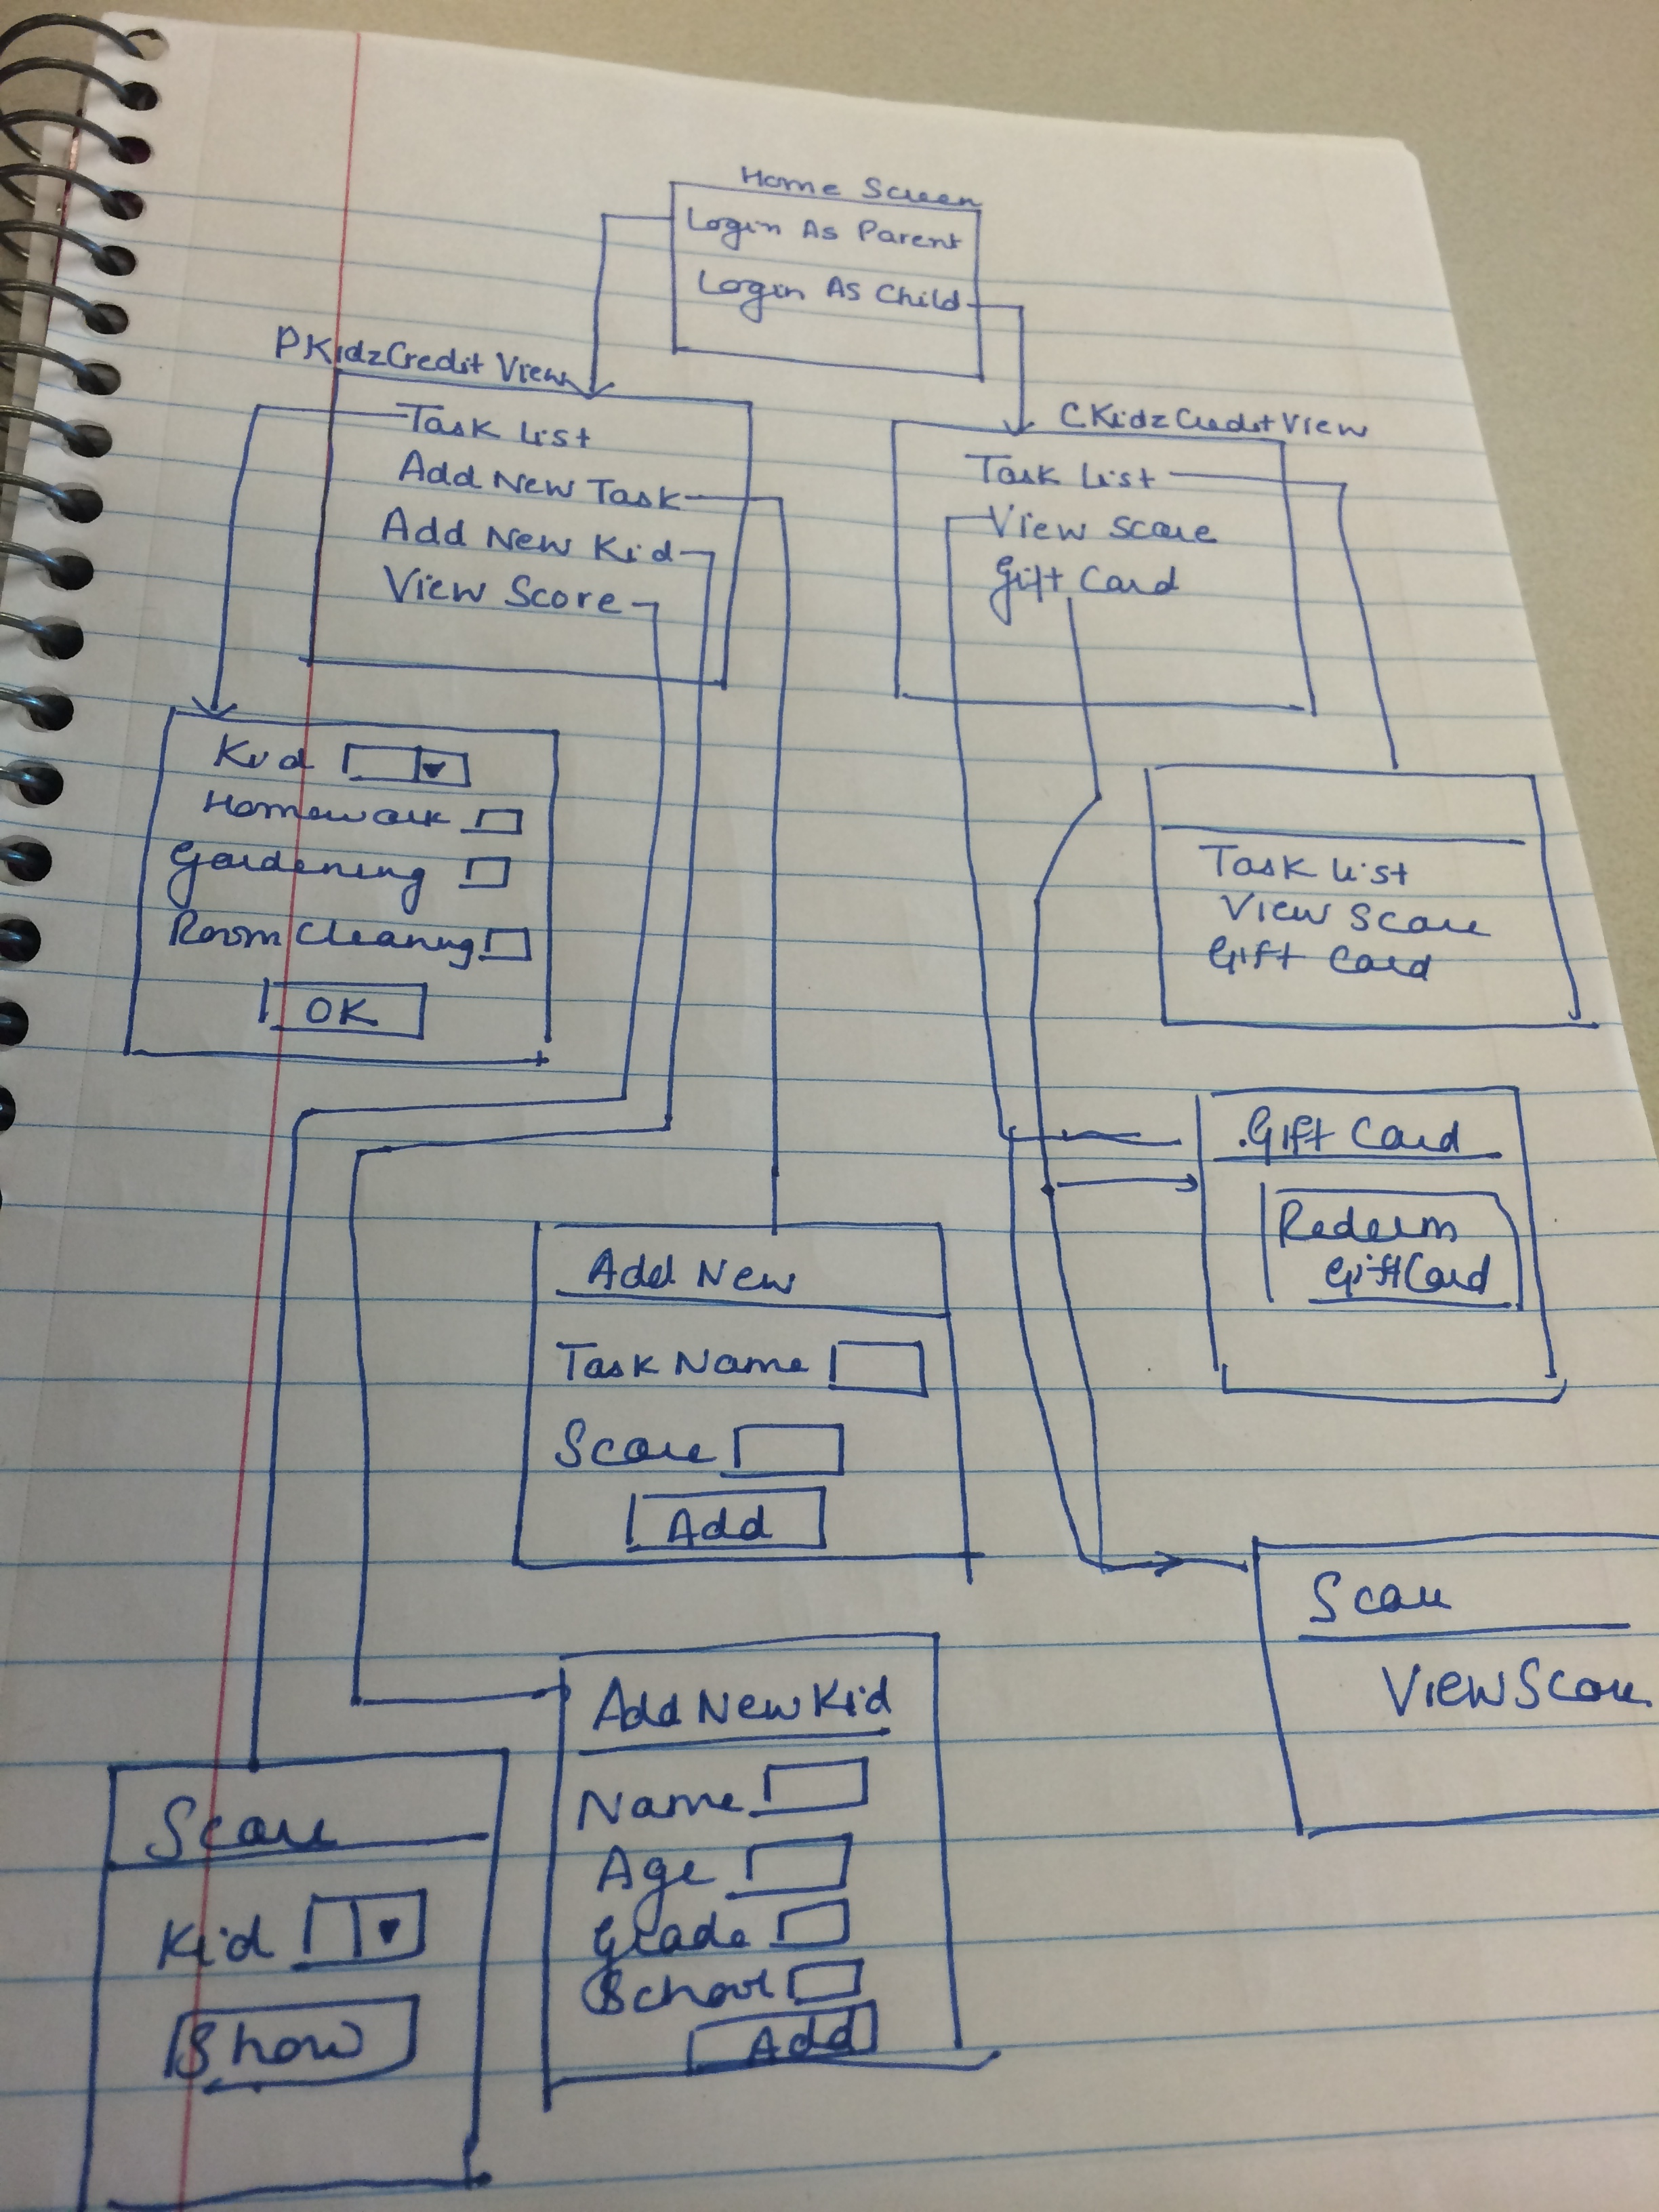 Home Screen
Login As Parent
Login As Child
PKidzCredit View
Task List
Add New Task
Add New Kid
View Score
CKidzCreditView
Task List
View Score
Gift Card
Kid
Homework
Gardening
Room Cleaning
OK
Task List
View Score
Gift Card
Gift Card
Redeem
GiftCard
Add New
Task Name
Score
Add
Score
View Score
Add New Kid
Name
Age
Grade
School
Add
Score
Kid
Show